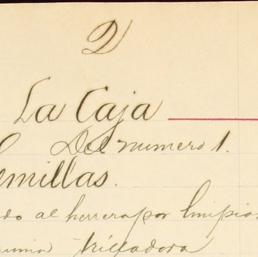 2
La Caja
Del numero 1.
millas.
do al herrero por limpia
trilladora